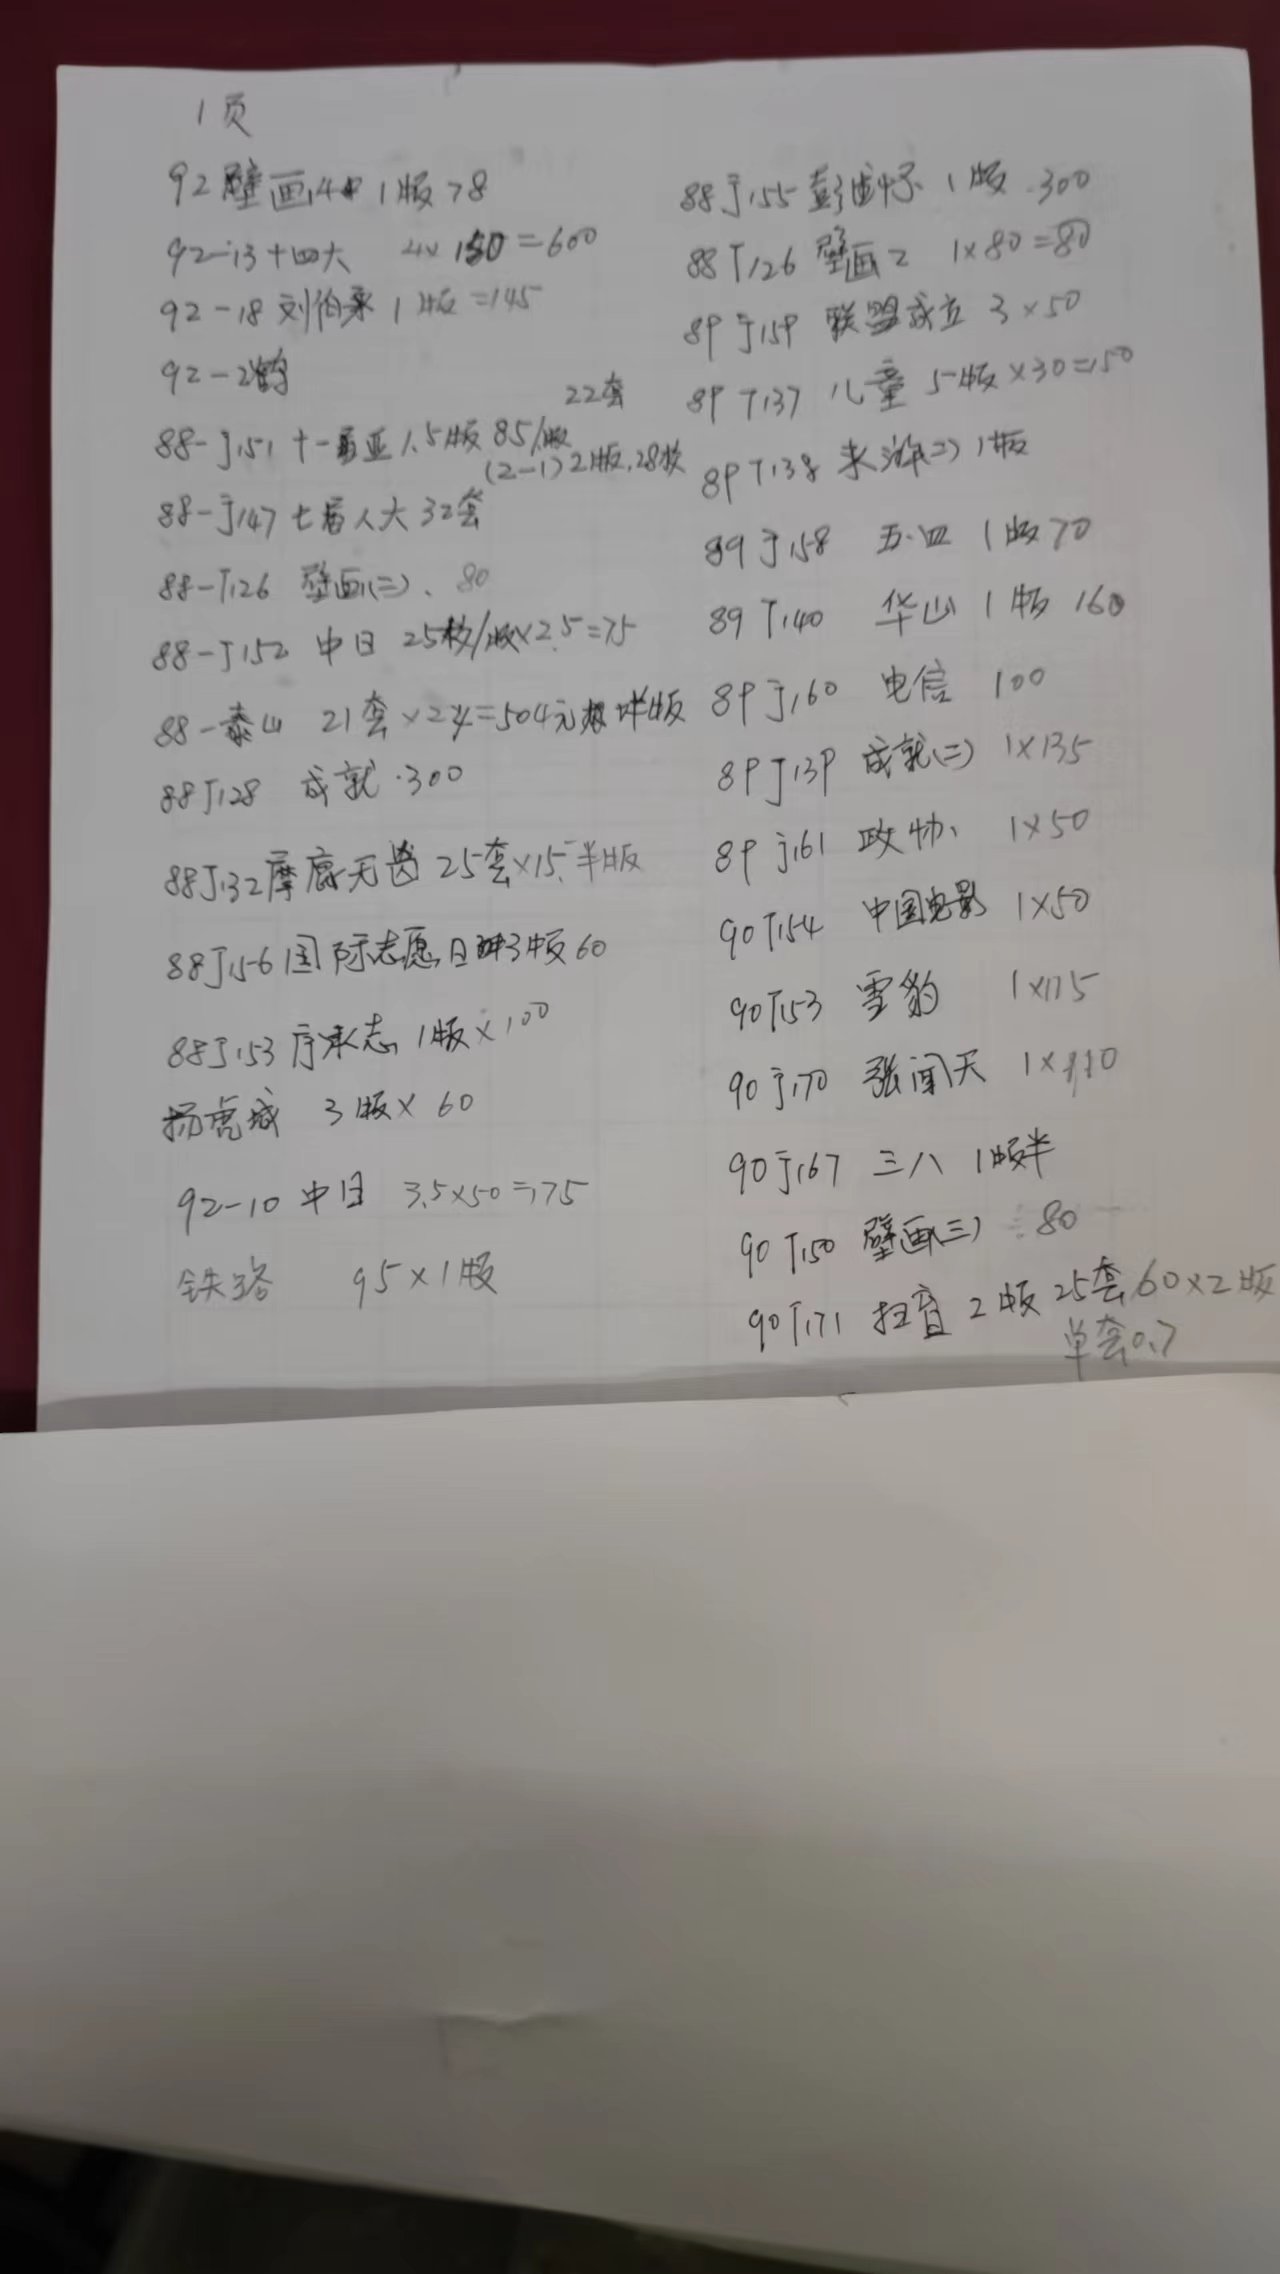 1页
92壁画4 1版78
92-13十四大 4×150=600
92-18刘伯承1版=145
92-2鹤
22套
88-J151 十一届亚1.5版 85/版
(2-1)2版.28枚
88-J147七届人大32套
88-T126 壁画(二)、80
88-J152 中日 25枚/版×2.5=75
88-泰山 21套×24=504元 半版
88J128 成就.300
88J132麋鹿无齿25套×15.半版
88J156国际志愿日 3版60
88J153廖承志1版×100
杨虎城 3版×60
92-10中日 3.5×50=175
铁路 95×1版
88J155彭德怀 1版.300
88T126壁画2 1×80=80
89J159 联盟成立 3×50
89T137 儿童 5版×30=150
89T138 水浒(二)1版
89J158 五.四 1版70
89T140 华山 1版 160
89J160 电信 100
89J139 成就(二) 1×135
89J161 政协、 1×50
90T154 中国电影 1×50
90T153 雪豹 1×175
90J170 张闻天 1×110
90J167 三八 1版半
90T150 壁画(三) 80
90T171 扫盲 2版25套60×2版
单套0.7